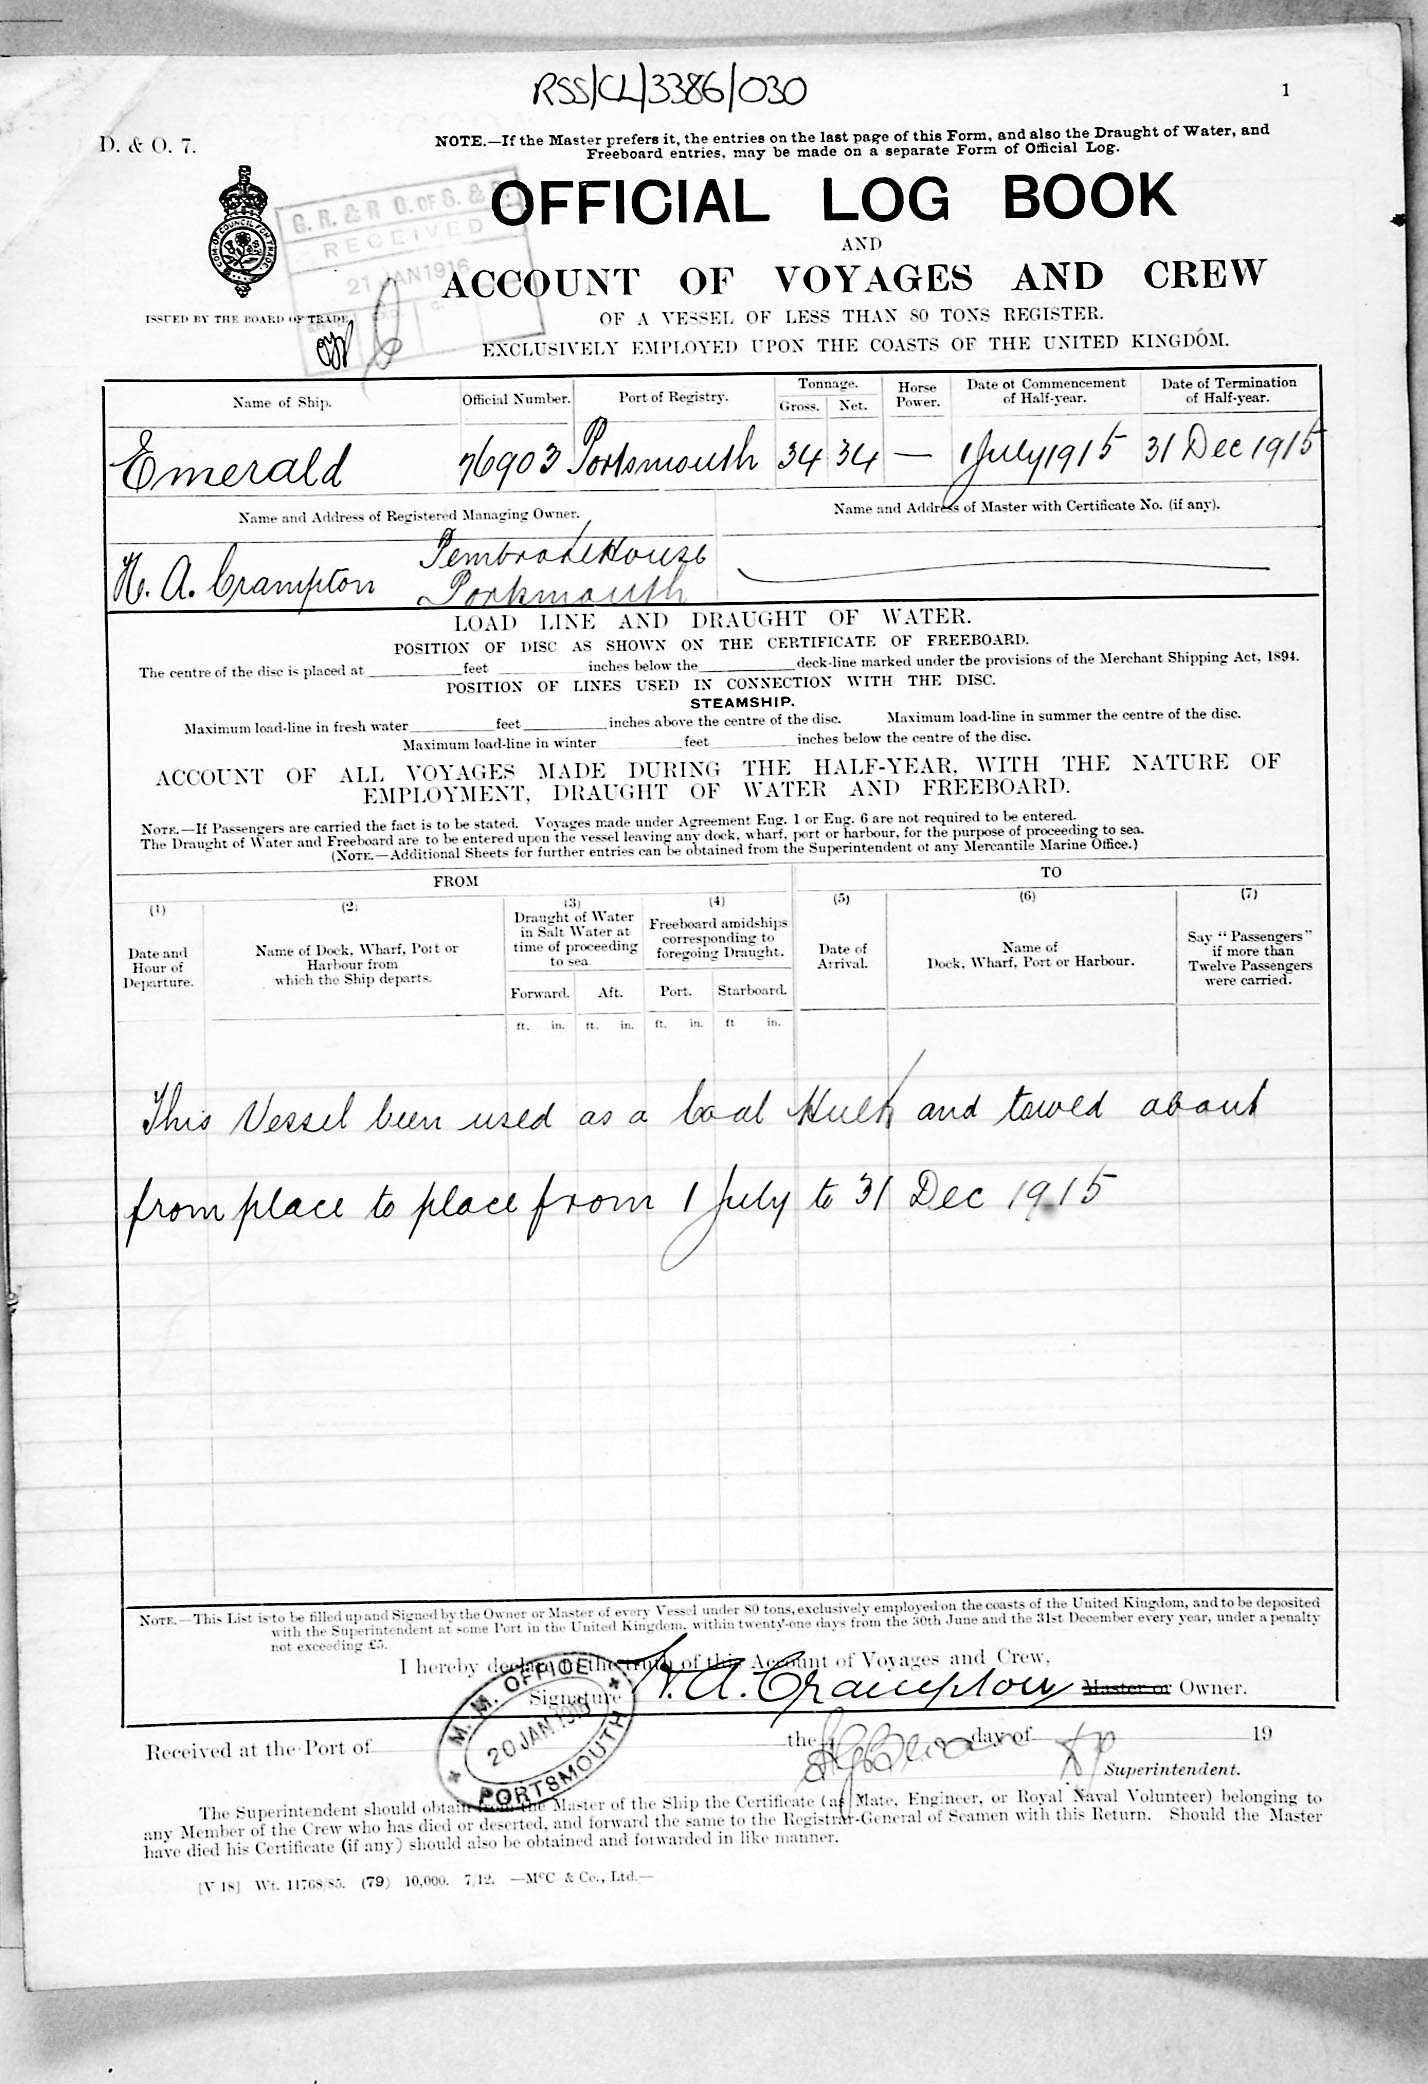 RSS/CL/3386/030
1
D. & O. 7.
NOTE.—If the Master prefers it, the entries on the last page of this Form, and also the Draught of Water, and
Freeboard entries, may be made on a separate Form of Official Log.
OFFICIAL LOG BOOK
AND
ACCOUNT OF VOYAGES AND CREW
OF A VESSEL OF LESS THAN 80 TONS REGISTER.
EXCLUSIVELY EMPLOYED UPON THE COASTS OF THE UNITED KINGDOM.
G. R. & R O. OF S. & S.
RECEIVED
21 JAN 1916
ISSUED BY THE BOARD OF TRADE
Name of Ship. Official Number. Port of Registry. Tonnage. Gross. Net. Horse Power. Date of Commencement of Half-year. Date of Termination of Half-year.
Emerald 76903 Portsmouth 34 34 — 1 July 1915 31 Dec 1915
Name and Address of Registered Managing Owner. Name and Address of Master with Certificate No. (if any).
H. A. Crampton Pembroke House
Portsmouth
LOAD LINE AND DRAUGHT OF WATER.
POSITION OF DISC AS SHOWN ON THE CERTIFICATE OF FREEBOARD.
The centre of the disc is placed at feet inches below the deck-line marked under the provisions of the Merchant Shipping Act, 1894.
POSITION OF LINES USED IN CONNECTION WITH THE DISC.
STEAMSHIP.
Maximum load-line in fresh water feet inches above the centre of the disc. Maximum load-line in summer the centre of the disc.
Maximum load-line in winter feet inches below the centre of the disc.
ACCOUNT OF ALL VOYAGES MADE DURING THE HALF-YEAR, WITH THE NATURE OF
EMPLOYMENT, DRAUGHT OF WATER AND FREEBOARD.
NOTE.—If Passengers are carried the fact is to be stated. Voyages made under Agreement Eng. 1 or Eng. 6 are not required to be entered.
The Draught of Water and Freeboard are to be entered upon the vessel leaving any dock, wharf, port or harbour, for the purpose of proceeding to sea.
(NOTE.—Additional Sheets for further entries can be obtained from the Superintendent of any Mercantile Marine Office.)
FROM TO
(1) (2) (3) (4) (5) (6) (7)
Date and Hour of Departure.
Name of Dock, Wharf, Port or Harbour from which the Ship departs.
Draught of Water in Salt Water at time of proceeding to sea.
Freeboard amidships corresponding to foregoing Draught.
Date of Arrival.
Name of Dock, Wharf, Port or Harbour.
Say "Passengers" if more than Twelve Passengers were carried.
Forward. Aft. Port. Starboard.
ft. in. ft. in. ft. in. ft in.
This Vessel been used as a Coal Hulk and towed about
from place to place from 1 July to 31 Dec 1915
NOTE.—This List is to be filled up and Signed by the Owner or Master of every Vessel under 80 tons, exclusively employed on the coasts of the United Kingdom, and to be deposited
with the Superintendent at some Port in the United Kingdom, within twenty-one days from the 30th June and the 31st December every year, under a penalty
not exceeding £5.
I hereby declare the truth of this Account of Voyages and Crew,
Signature H. A. Crampton Master or Owner.
M. M. OFFICE
20 JAN 1916
PORTSMOUTH
Received at the Port of the day of 19
Superintendent.
The Superintendent should obtain from the Master of the Ship the Certificate (as Mate, Engineer, or Royal Naval Volunteer) belonging to
any Member of the Crew who has died or deserted, and forward the same to the Registrar-General of Seamen with this Return. Should the Master
have died his Certificate (if any) should also be obtained and forwarded in like manner.
[V 18] Wt. 11768/85. (79) 10,000. 7/12. —McC & Co., Ltd.—